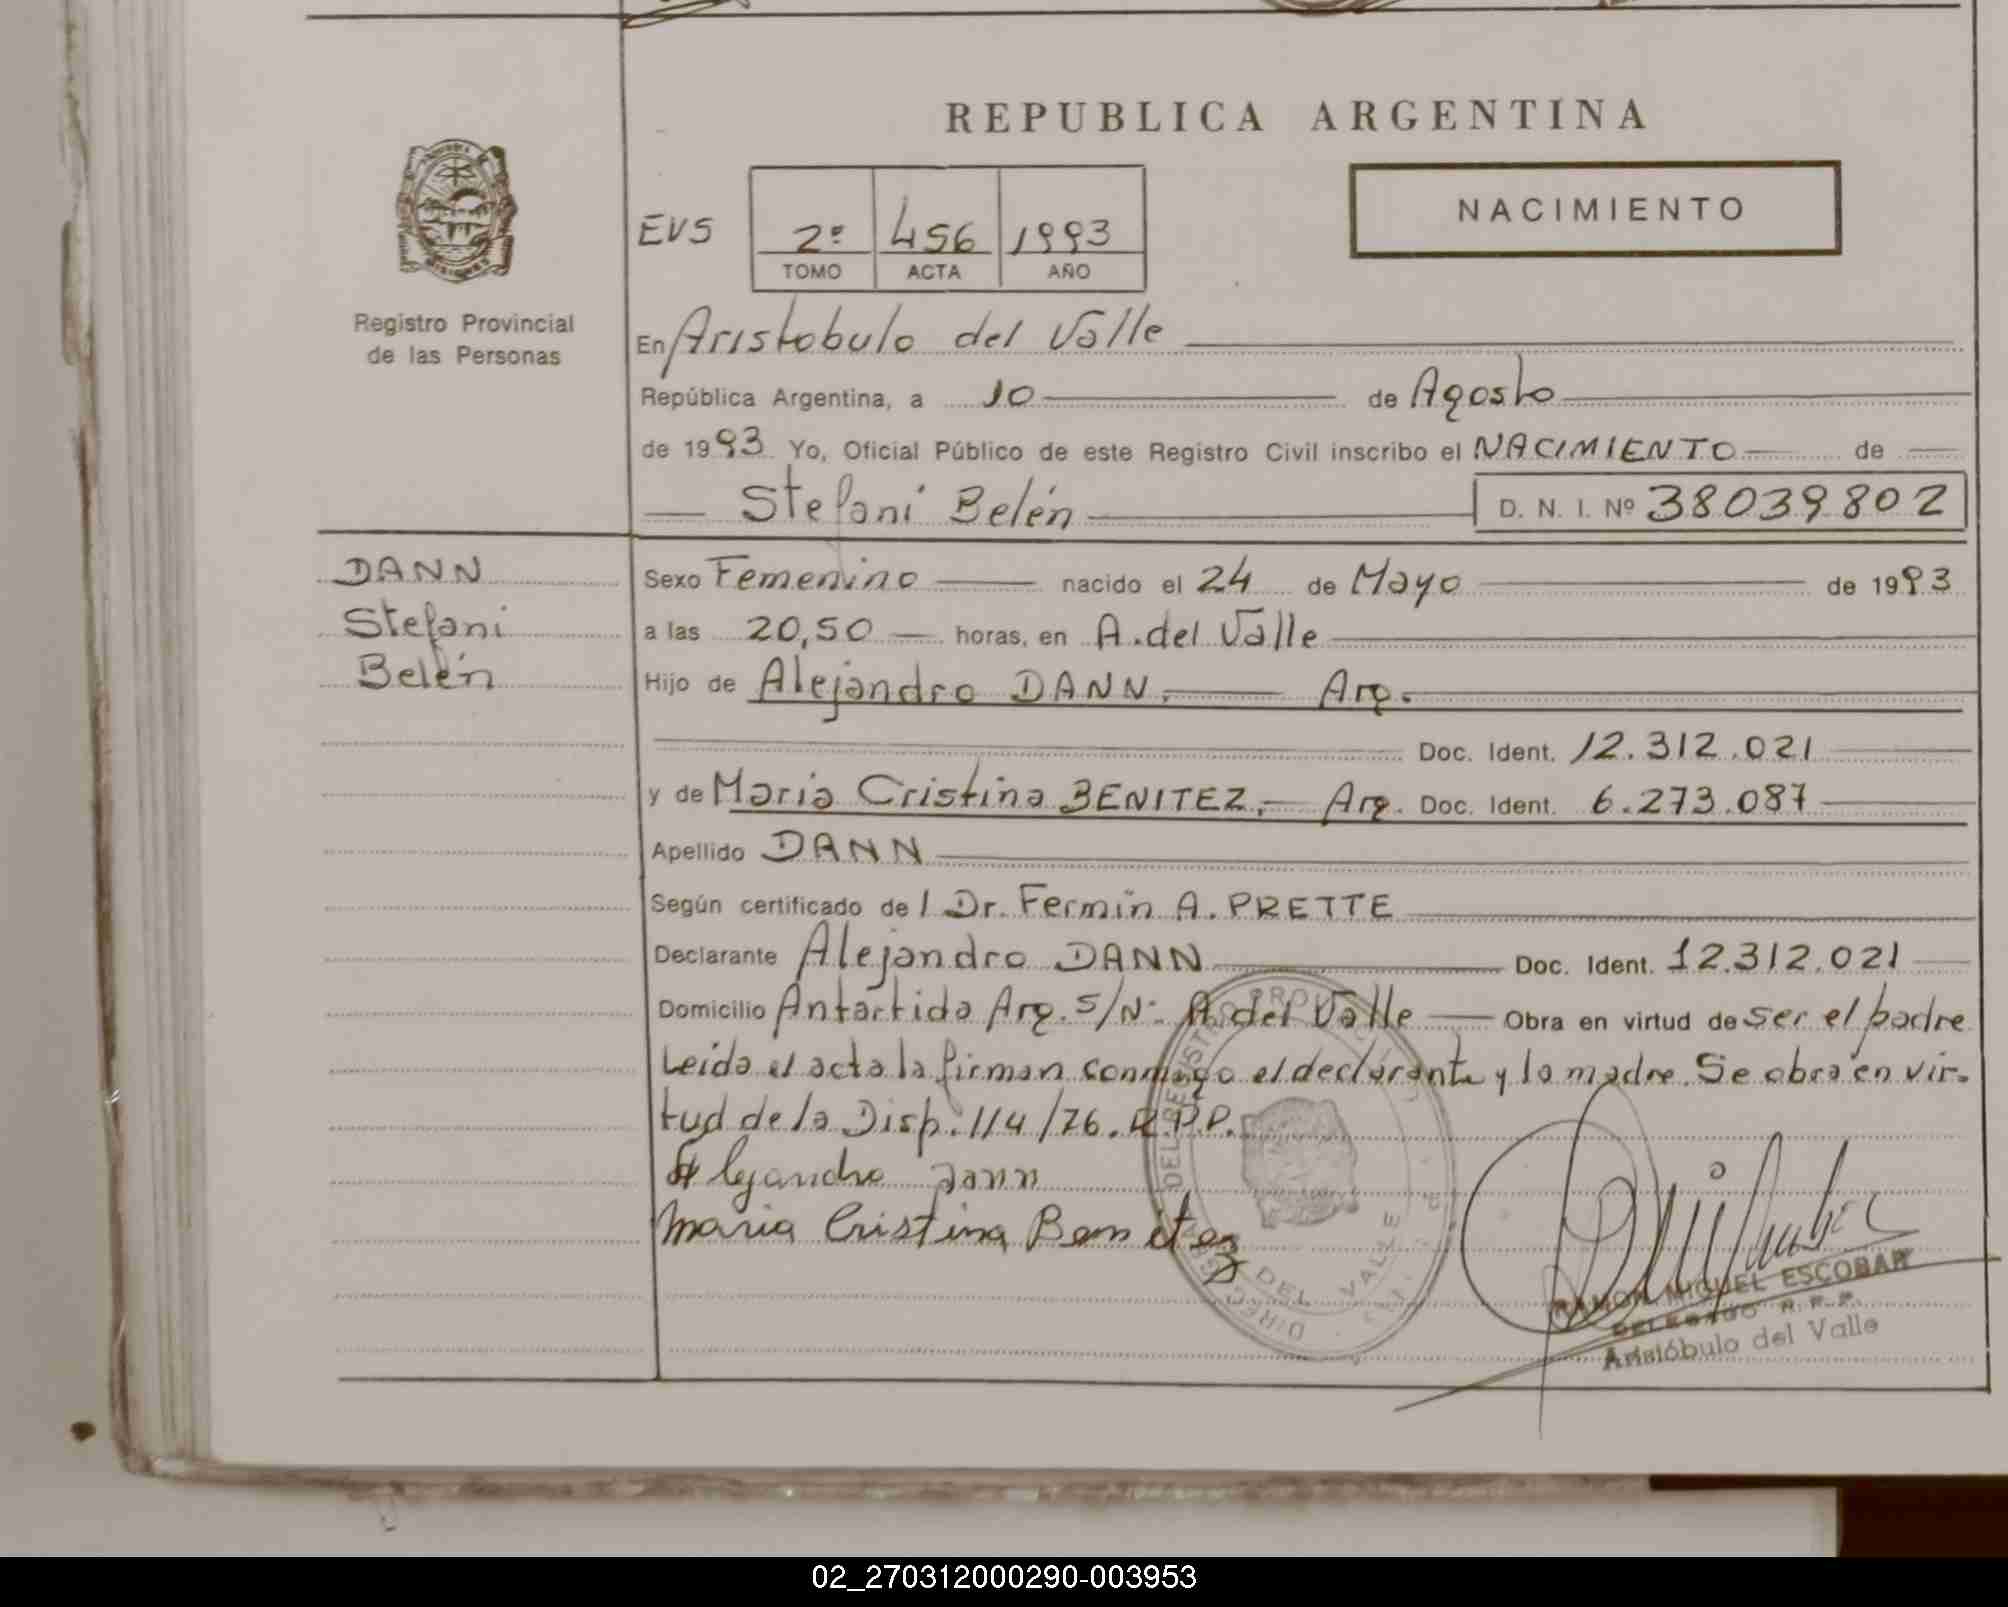 REPUBLICA ARGENTINA
NACIMIENTO
EVS
2º 456 1993
TOMO ACTA AÑO
Registro Provincial
de las Personas
En Aristobulo del Valle
República Argentina, a 10 de Agosto
de 1993 Yo, Oficial Público de este Registro Civil inscribo el NACIMIENTO de
Stefani Belén D. N. I. Nº 38039802
DANN
Stefani
Belén
Sexo Femenino nacido el 24 de Mayo de 1993
a las 20,50 horas, en A. del Valle
Hijo de Alejandro DANN. Arg.
Doc. Ident. 12.312.021
y de Maria Cristina BENITEZ. Arg. Doc. Ident. 6.273.087
Apellido DANN
Según certificado del Dr. Fermin A. PRETTE
Declarante Alejandro DANN Doc. Ident. 12.312.021
Domicilio Antartida Arg. S/Nº A. del Valle Obra en virtud de ser el padre
Leida el acta la firman conmigo el declarante y la madre. Se obra en vir-
tud de la Disp. 114/76. R.P.P.
Alejandro Dann
Maria Cristina Benitez
DEL VALLE
RAMON MIGUEL ESCOBAR
DELEGADO R. P. P.
Aristóbulo del Valle
02_270312000290-003953